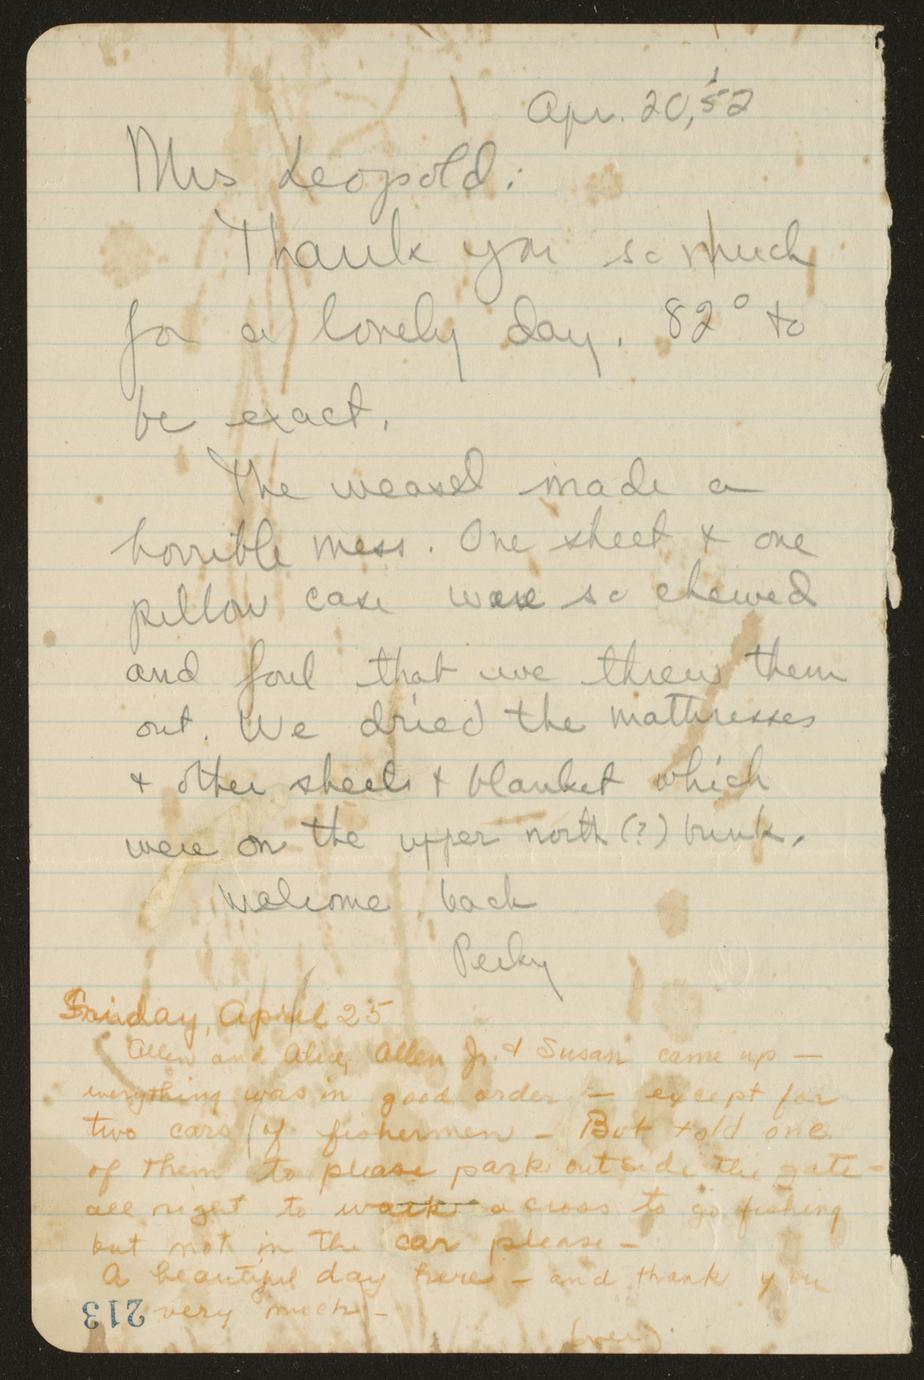 Apr. 20, '52
Mrs Leopold:
Thank you so much
for a lovely day. 82° to
be exact.
The weasel made a
horrible mess. One sheet & one
pillow case were so chewed
and foul that we threw them
out. We dried the mattresses
& other sheets & blanket which
were on the upper north (?) bunk.
Welcome back
Perky
Friday, April 25
Allen and Alice, Allen Jr. & Susan came up —
everything was in good order — except for
two cars of fishermen — But told one
of them to please park outside the gate —
all right to walk across to go fishing
but not in the car please —
A beautiful day here — and thank you
very much —
(over)
213